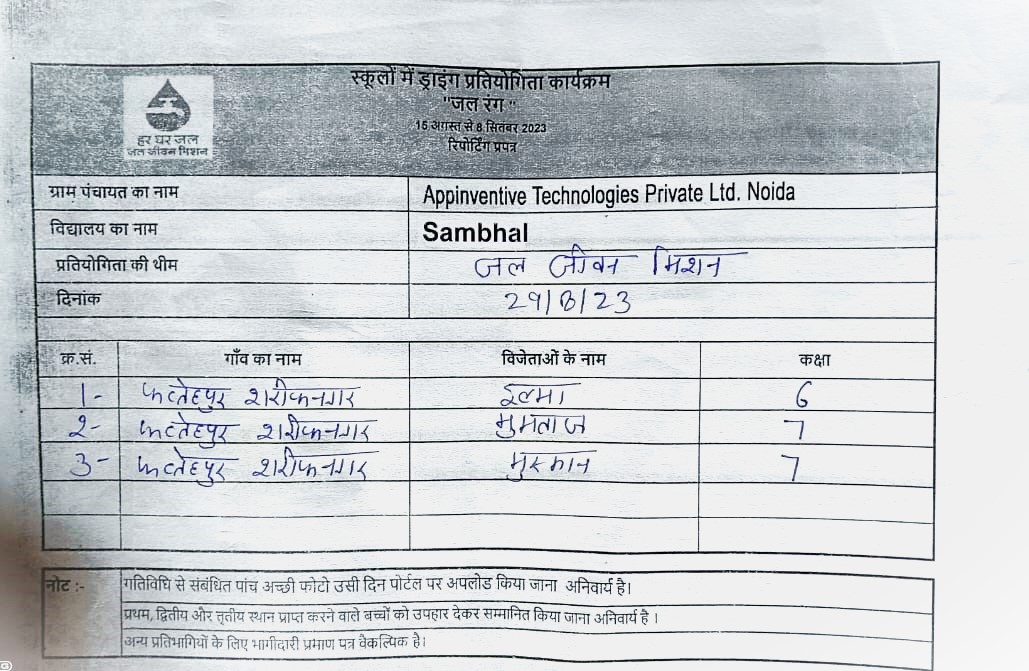 स्कूलों में ड्राइंग प्रतियोगिता कार्यक्रम
"जल रंग"
15 अगस्त से 8 सितंबर 2023
रिपोर्टिंग प्रपत्र
हर घर जल
जल जीवन मिशन
ग्राम पंचायत का नाम Appinventive Technologies Private Ltd. Noida
विद्यालय का नाम Sambhal
प्रतियोगिता की थीम जल जीवन मिशन
दिनांक 29/8/23
क्र.सं. गाँव का नाम विजेताओं के नाम कक्षा
1- फत्तेहपुर शरीफनगर इल्मा 6
2- फत्तेहपुर शरीफनगर मुमताज 7
3- फत्तेहपुर शरीफनगर मुस्कान 7
नोट :- गतिविधि से संबंधित पांच अच्छी फोटो उसी दिन पोर्टल पर अपलोड किया जाना अनिवार्य है।
प्रथम, द्वितीय और तृतीय स्थान प्राप्त करने वाले बच्चों को उपहार देकर सम्मानित किया जाना अनिवार्य है ।
अन्य प्रतिभागियों के लिए भागीदारी प्रमाण पत्र वैकल्पिक है।